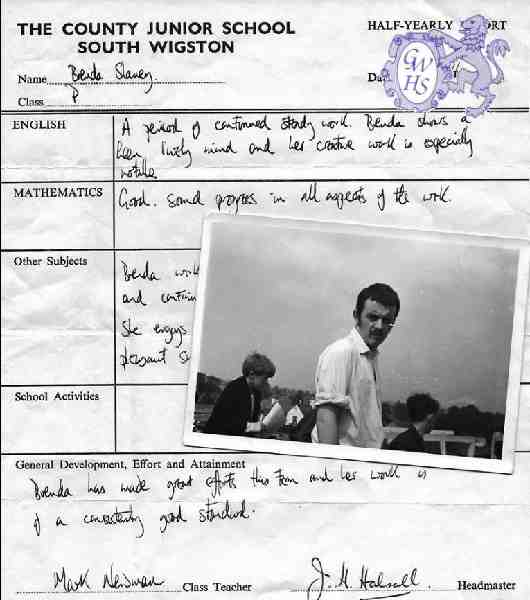 THE COUNTY JUNIOR SCHOOL
SOUTH WIGSTON
HALF-YEARLY
Name Brenda Slaney
Class P
GWHS
ENGLISH
A period of continued steady work. Brenda shows a
keen lively mind and her creative work is especially
notable
MATHEMATICS
Good. Sound progress in all aspects of the work.
Other Subjects
Brenda
and
She enjoys
pleasant
School Activities
General Development, Effort and Attainment
Brenda has made great efforts this term and her work is
of a consistently good standard.
Mark Class Teacher
J. H. Headmaster